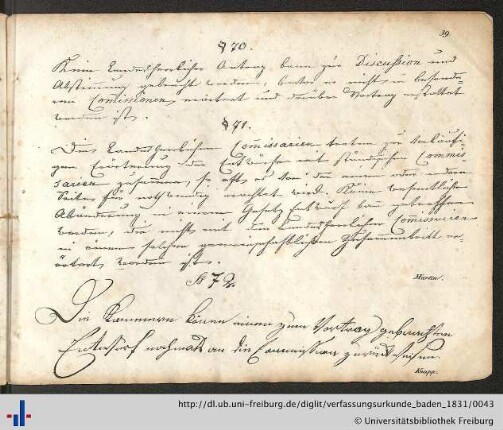 39.
§ 70.
Kein landesherrlicher Antrag kann zur Discußion und
Abstimmung gebracht werden, bevor er nicht in besonde-
ren Commissionen erörtert und darüber Vortrag erstattet
worden ist.
§ 71.
Die landesherrlichen Commissarien treten zur vorläufi-
gen Erörterung der Entwürfe mit ständischen Commis
sarien zusammen, so oft es von der einen oder andern
Seite für nothwendig erachtet wird. Keine wesentliche
Abänderung in einem Gesetz Entwurf kann getroffen
werden, die nicht mit den landesherrlichen Commissarien
in einem solchen gemeinschaftlichen Zusammentritt er-
örtert worden ist.
Martin.
§ 72.
Die Kammern können einen zum Vortrag gebrachten
Entwurf nochmals an die Commission zurückweisen.
Knapp.
http://dl.ub.uni-freiburg.de/diglit/verfassungsurkunde_baden_1831/0043
© Universitätsbibliothek Freiburg